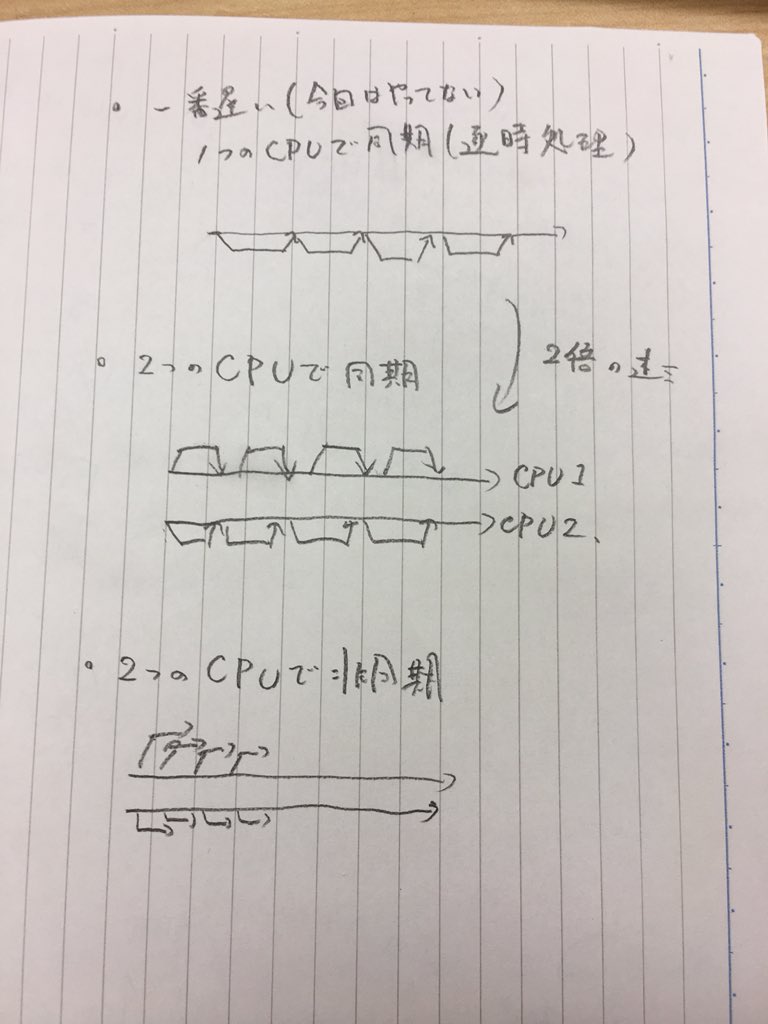 ・一番遅い(今回はやってない)
1つのCPUで同期(逐時処理)
2倍の速さ
・2つのCPUで同期
CPU1
CPU2
・2つのCPUで非同期